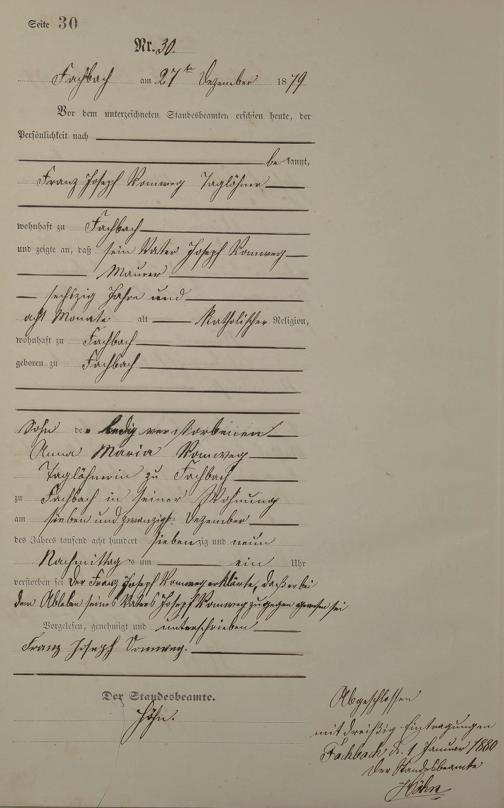 Seite 30
Nr. 30.
Fachbach am 27ten Dezember 1879
Vor dem unterzeichneten Standesbeamten erschien heute, der
Persönlichkeit nach
be kannt,
Franz Joseph Tagløhner
wohnhaft zu Fachbach
und zeigte an, daß sein Vater Joseph
Maurer
sechszig Jahre und
acht Monate alt katholischer Religion,
wohnhaft zu Fachbach
geboren zu Fachbach
Sohn der ledig verstorbenen
Anna Maria
Taglöhnerin zu Fachbach
zu Fachbach in seiner Wohnung
am sieben und zwanzigst Dezember
des Jahres tausend acht hundert siebenzig und neun
Nachmittag s um ein Uhr
verstorben sei Der Franz Joseph erklärte, daß er bei
dem Ableben seines Vaters Joseph zugegen gewesen sei
Vorgelesen, genehmigt und unterschrieben
Franz Joseph
Der Standesbeamte.
Höhn.
Abgeschlossen
mit dreißig Eintragungen
Fachbach d. 1 Januar 1880
Der Standesbeamte
Höhn